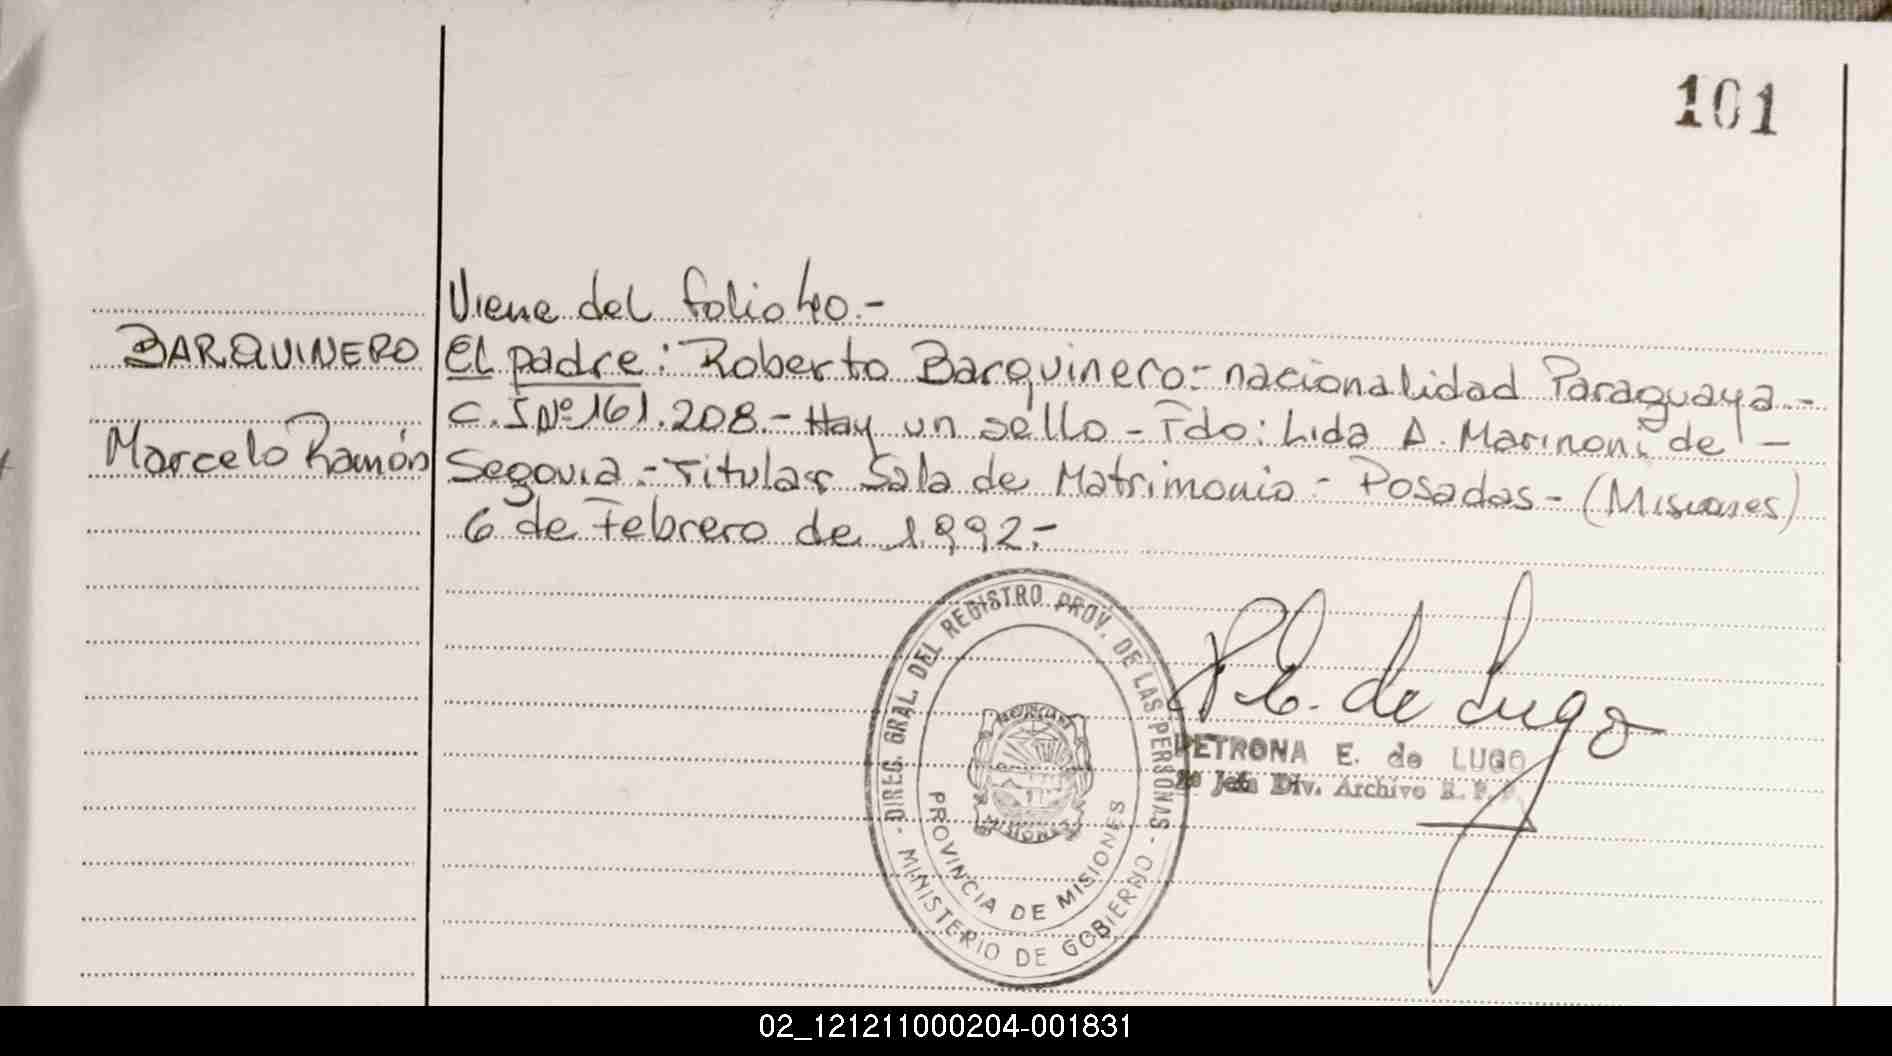 101
Viene del folio 40.-
BARQUINERO
El padre: Roberto Barquinero.- nacionalidad Paraguaya.-
C.I Nº 161.208.- Hay un sello - Fdo: Lida A. Marinoni de -
Marcelo Ramón
Segovia.- Titular Sala de Matrimonio - Posadas - (Misiones)
6 de Febrero de 1.992.-
- DIREG. GRAL. DEL REGISTRO PROV. DE LAS PERSONAS -
MINISTERIO DE GOBIERNO
PROVINCIA DE MISIONES
P.E. de Lugo
PETRONA E. de LUGO
Div. Archivo R. P.
02_121211000204-001831